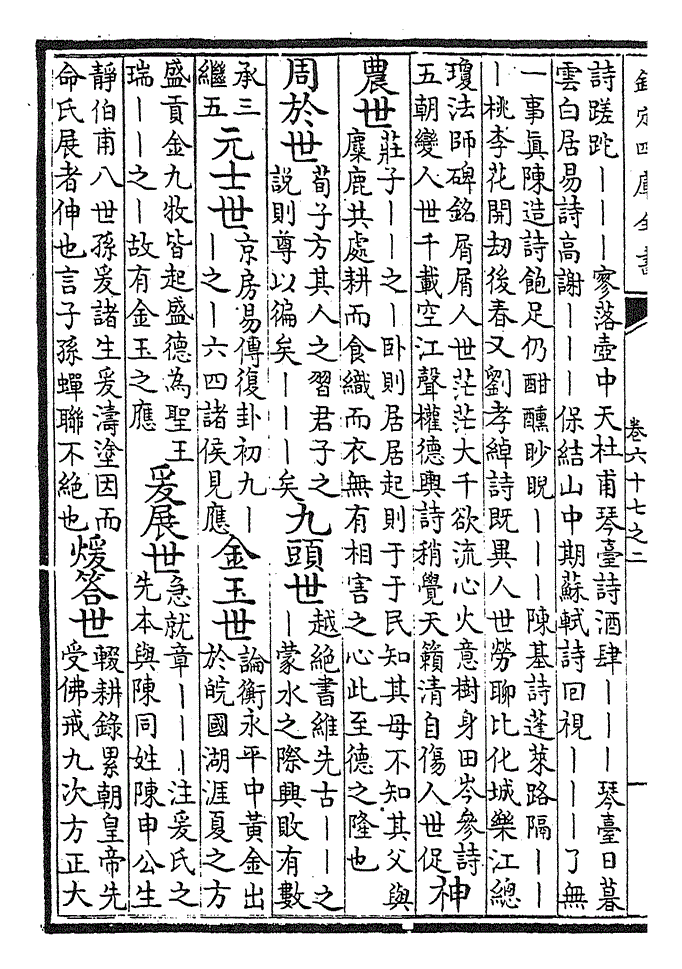 欽定四庫全書 卷六十七之二
詩蹉跎丨丨丨寥落壺中天杜甫琴臺詩酒肆丨丨丨琴臺日暮
雲白居易詩高謝丨丨丨保結山中期蘇軾詩回視丨丨丨了無
一事真陳造詩飽足仍酣醺眇睨丨丨丨陳基詩蓬萊路隔丨丨
丨桃李花開刼後春又劉孝綽詩既異人世勞聊比化城樂江總
瓊法師碑銘屑屑人世茫茫大千欲流心火意樹身田岑參詩
五朝變人世千載空江聲權德輿詩稍覺天籟清自傷人世促
神
農世
莊子丨丨之丨卧則居居起則于于民知其母不知其父與
麋鹿共處耕而食織而衣無有相害之心此至德之隆也
周於世
荀子方其人之習君子之
説則尊以徧矣丨丨丨矣
九頭世
越絶書維先古丨丨之
丨蒙水之際興敗有數
承三
繼五
元士世
京房易傳復卦初九丨
丨之丨六四諸侯見應
金玉世
論衡永平中黃金出
於皖國湖涯夏之方
盛貢金九牧皆起盛德為聖王
瑞丨丨之丨故有金玉之應
爰展世
急就章丨丨丨注爰氏之
先本與陳同姓陳申公生
靜伯甫八世孫爰諸生爰濤塗因而
命氏展者伸也言子孫蟬聯不絶也
煖答世
輟耕錄累朝皇帝先
受佛戒九次方正大